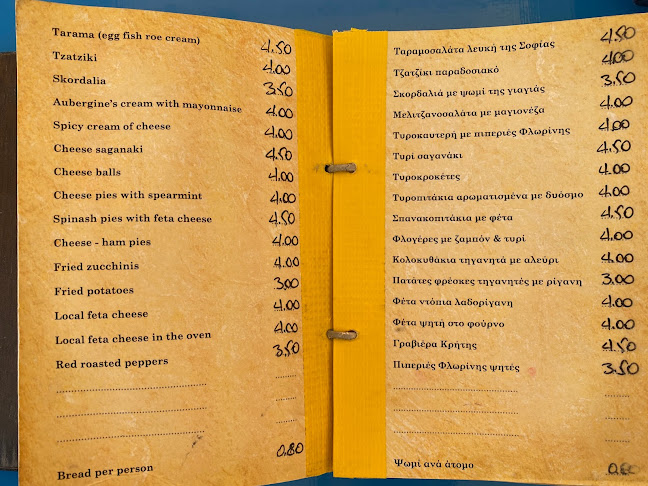 Tarama (egg fish roe cream) 4.50
Tzatziki 4.00
Skordalia 3.50
Aubergine's cream with mayonnaise 4.00
Spicy cream of cheese 4.00
Cheese saganaki 4.50
Cheese balls 4.00
Cheese pies with spearmint 4.00
Spinash pies with feta cheese 4.50
Cheese - ham pies 4.00
Fried zucchinis 4.00
Fried potatoes 3.00
Local feta cheese 4.00
Local feta cheese in the oven 4.00
Red roasted peppers 3.50
Bread per person 0.80
Ταραμοσαλάτα λευκή της Σοφίας 4.50
Τζατζίκι παραδοσιακό 4.00
Σκορδαλιά με ψωμί της γιαγιάς 3.50
Μελιτζανοσαλάτα με μαγιονέζα 4.00
Τυροκαυτερή με πιπεριές Φλωρίνης 4.00
Τυρί σαγανάκι 4.50
Τυροκροκέτες 4.00
Τυροπιτάκια αρωματισμένα με δυόσμο 4.00
Σπανακοπιτάκια με φέτα 4.50
Φλογέρες με ζαμπόν & τυρί 4.00
Κολοκυθάκια τηγανητά με αλεύρι 4.00
Πατάτες φρέσκες τηγανητές με ρίγανη 3.00
Φέτα ντόπια λαδορίγανη 4.00
Φέτα ψητή στο φούρνο 4.00
Γραβιέρα Κρήτης 4.50
Πιπεριές Φλωρίνης ψητές 3.50
Ψωμί ανά άτομο